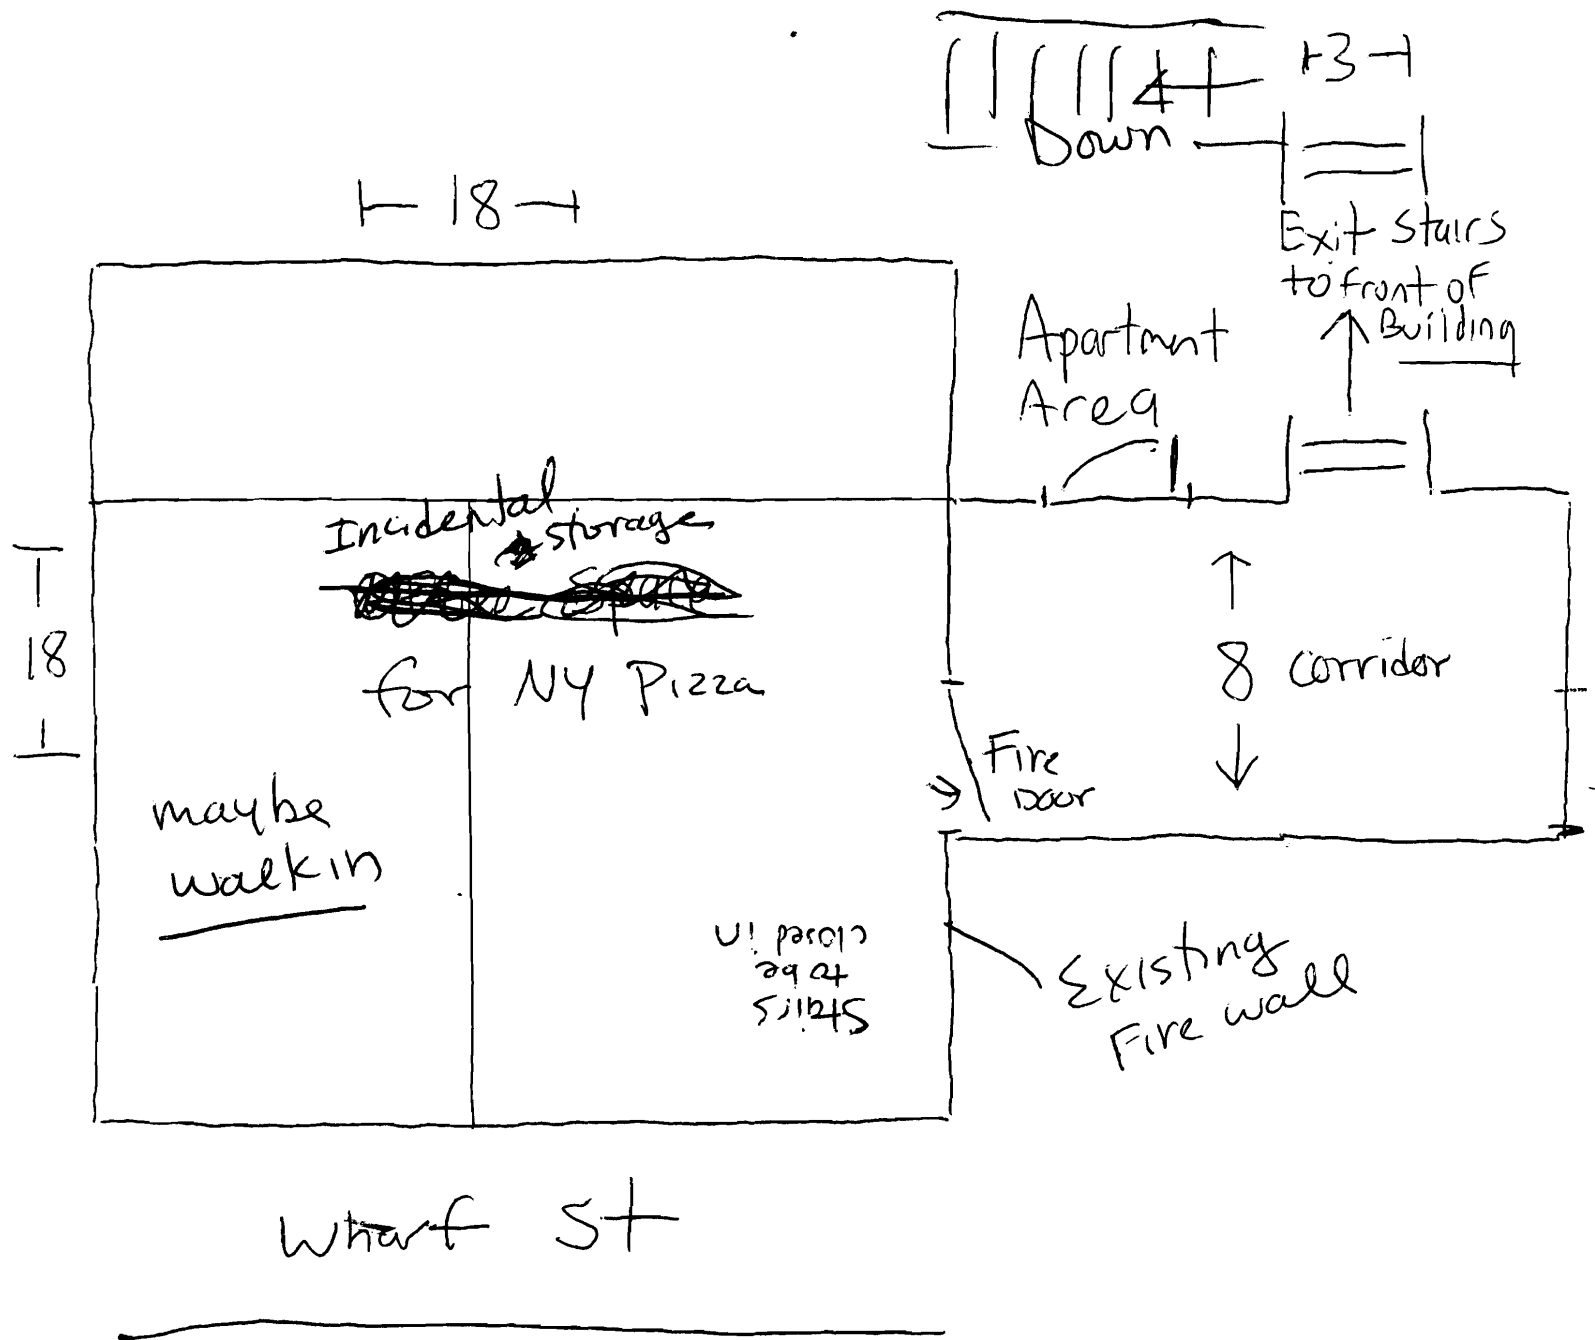 3
Down
18
Exit stairs
to front of
Building
Apartment
Area
Incidental
storage
for NY Pizza
18
8 corridor
Fire
Door
maybe
walkin
Stairs
to be
closed in
Existing
Fire wall
Wharf St